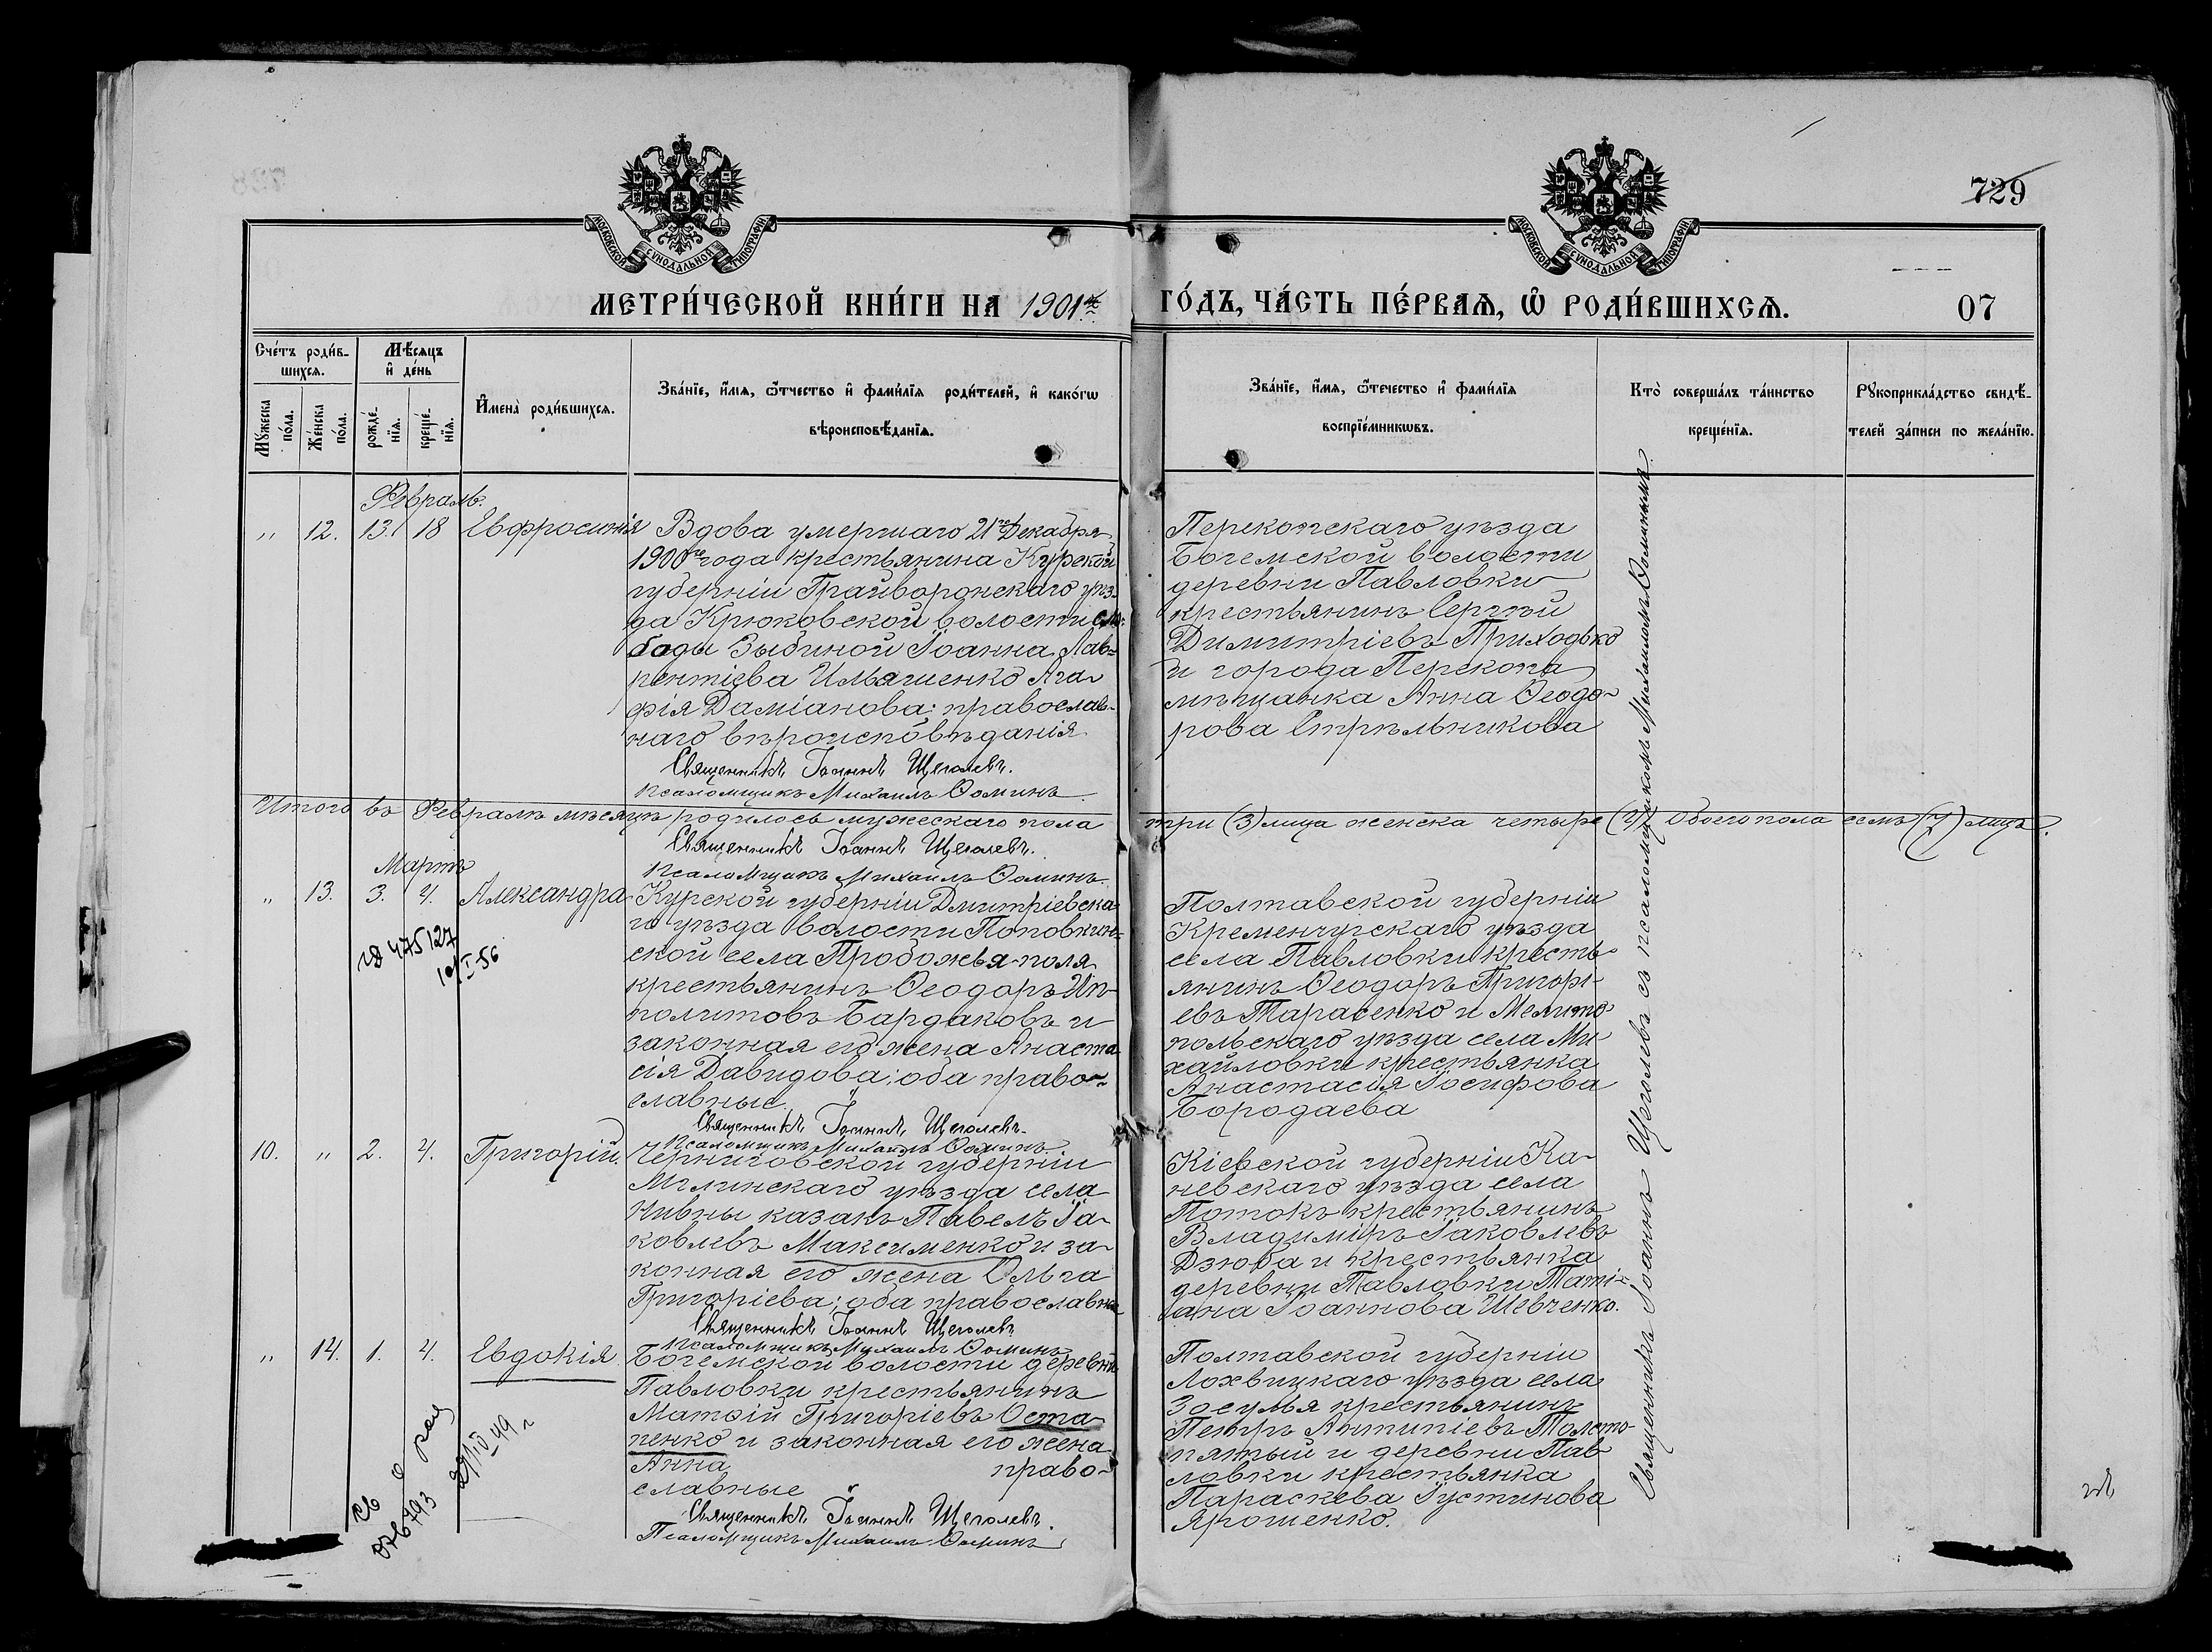 729
МОСКОВСКОЙ СѴНОДАЛЬНОЙ ТИПОГРАФІИ
МОСКОВСКОЙ СѴНОДАЛЬНОЙ ТИПОГРАФІИ
МЕТРИ́ЧЕСКОЙ КНИ́ГИ НА 1901
ГО́ДЪ, ЧА́СТЬ ПЕ́РВАѦ, Ѡ РОДИ́ВШИХСѦ.
07
Сче́тъ роди́в-
шихсѧ.
Мѣ́сѧцъ
и҆ де́нь
Мꙋ́жеска
по́ла.
Же́нска
по́ла.
рожде́-
нїѧ.
креще́-
нїѧ.
И҆мена̀ роди́вшихсѧ.
Зва́нїе, и҆́мѧ, ѻ҆́тчество и҆ фами́лїѧ роди́телей, и҆ како́гѡ
вѣроисповѣ́данїѧ.
Зва́нїе, и҆́мѧ, ѻ҆́течество и҆ фами́лїѧ
воспрїе́мникѡвъ.
Кто̀ соверша́лъ та́инство
креще́нїѧ.
Рꙋкоприкла́дство свидѣ́-
телей за́писи по жела́нїю.
Февраль.
„ 12. 13. 18 Евфросинія
Вдова умершаго 21го Декабря
1900го года крестьянина Курской
губерніи Грайворонскаго уѣз-
да Крюковской волости сло-
боды Зыбиной Іоанна Лав-
рентіева Ильяшенко Ага-
фія Даміанова: православ-
наго вѣроисповѣданія
Священникъ Іоаннъ Щеголевъ.
Псаломщикъ Михаилъ Ѳоминъ
Перекопскаго уѣзда
Богемской волости
деревни Павловки
крестьянинъ Сергѣй
Димитріевъ Приходько
и города Перекопа
мѣщанка Анна Ѳеодо-
рова Стрѣльникова
Итого въ Февралѣ мѣсяцѣ родилось мужескаго пола три (3) лица женска четыре (4) Обоего пола семь (7) лицъ.
Священникъ Іоаннъ Щеголевъ.
Псаломщикъ Михаилъ Ѳоминъ.
Мартъ
„ 13. 3. 4. Александра
Курской губерніи Дмитріевска-
го уѣзда волости Поповкин-
ской села Пробожья-поля
крестьянинъ Ѳеодоръ Ип-
политовъ Бардаковъ и
законная его жена Анаста-
сія Давидова; оба право-
славные
Священникъ Іоаннъ Щеголевъ
Псаломщикъ Михаилъ Ѳоминъ
475127
Полтавской губерніи
Кременчугскаго уѣзда
села Павловки кресть-
янинъ Ѳеодоръ Григорі-
евъ Тарасенко и Мелито-
польскаго уѣзда села Ми-
хайловки крестьянка
Анастасія Іосифова
Бородаева
10. „ 2. 4. Григорій.
Черниговской губерніи
Мглинскаго уѣзда села
Нивны казакъ Павелъ Іа-
ковлевъ Максименко и за-
конная его жена Ольга
Григоріева; оба православны
Священникъ Іоаннъ Щеголевъ
Псаломщикъ Михаилъ Ѳоминъ
Кіевской губерніи Ка-
невскаго уѣзда села
Потокъ крестьянинъ
Владиміръ Іаковлевъ
Дзюба и крестьянка
деревни Павловки Таті-
ана Іоаннова Шевченко.
„ 14. 1. 4. Евдокія
Богемской волости деревни
Павловки крестьянинъ
Матѳій Григоріевъ Оста-
пенко и законная его жена
Анна право-
славные
Священникъ Іоаннъ Щеголевъ.
Псаломщикъ Михаилъ Ѳоминъ
Полтавской губерніи
Лохвицкаго уѣзда села
Засулья крестьянинъ
Петръ Антипіевъ Толсто-
пятый и деревни Пав-
ловки крестьянка
Параскева Іустинова
Ярошенко.
Священникъ Іоаннъ Щеголевъ съ псаломщикомъ Михаиломъ Ѳоминымъ.